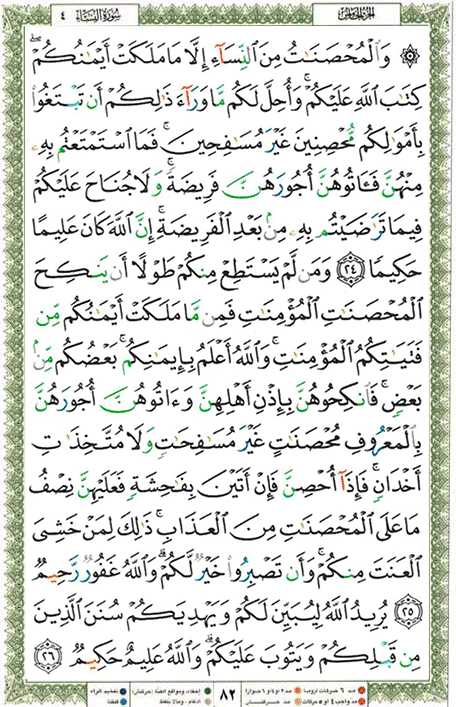 سُورَةُ النِّسَاءِ ٤
الجزء الخامس
۞ وَالْمُحْصَنَاتُ مِنَ النِّسَاءِ إِلَّا مَا مَلَكَتْ أَيْمَانُكُمْ ۖ
كِتَابَ اللَّهِ عَلَيْكُمْ ۚ وَأُحِلَّ لَكُم مَّا وَرَاءَ ذَٰلِكُمْ أَن تَبْتَغُوا
بِأَمْوَالِكُم مُّحْصِنِينَ غَيْرَ مُسَافِحِينَ ۚ فَمَا اسْتَمْتَعْتُم بِهِ
مِنْهُنَّ فَآتُوهُنَّ أُجُورَهُنَّ فَرِيضَةً ۚ وَلَا جُنَاحَ عَلَيْكُمْ
فِيمَا تَرَاضَيْتُم بِهِ مِن بَعْدِ الْفَرِيضَةِ ۚ إِنَّ اللَّهَ كَانَ عَلِيمًا
حَكِيمًا ٢٤ وَمَن لَّمْ يَسْتَطِعْ مِنكُمْ طَوْلًا أَن يَنكِحَ
الْمُحْصَنَاتِ الْمُؤْمِنَاتِ فَمِن مَّا مَلَكَتْ أَيْمَانُكُم مِّن
فَتَيَاتِكُمُ الْمُؤْمِنَاتِ ۚ وَاللَّهُ أَعْلَمُ بِإِيمَانِكُم ۚ بَعْضُكُم مِّن
بَعْضٍ ۚ فَانكِحُوهُنَّ بِإِذْنِ أَهْلِهِنَّ وَآتُوهُنَّ أُجُورَهُنَّ
بِالْمَعْرُوفِ مُحْصَنَاتٍ غَيْرَ مُسَافِحَاتٍ وَلَا مُتَّخِذَاتِ
أَخْدَانٍ ۚ فَإِذَا أُحْصِنَّ فَإِنْ أَتَيْنَ بِفَاحِشَةٍ فَعَلَيْهِنَّ نِصْفُ
مَا عَلَى الْمُحْصَنَاتِ مِنَ الْعَذَابِ ۚ ذَٰلِكَ لِمَنْ خَشِيَ
الْعَنَتَ مِنكُمْ ۚ وَأَن تَصْبِرُوا خَيْرٌ لَّكُمْ ۗ وَاللَّهُ غَفُورٌ رَّحِيمٌ
٢٥ يُرِيدُ اللَّهُ لِيُبَيِّنَ لَكُمْ وَيَهْدِيَكُمْ سُنَنَ الَّذِينَ
مِن قَبْلِكُمْ وَيَتُوبَ عَلَيْكُمْ ۗ وَاللَّهُ عَلِيمٌ حَكِيمٌ ٢٦
٨٢